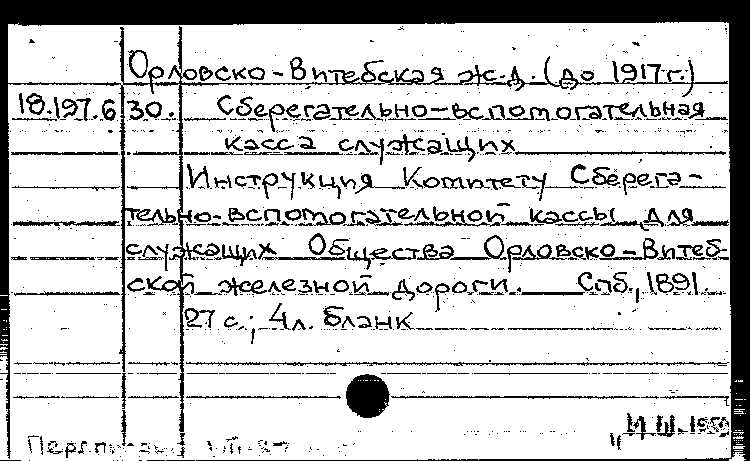 Орловско-Витебская ж.д. (до 1917 г.)
18.197.6 30. Сберегательно-вспомогательная
касса служащих
Инструкция Комитету Сберега-
тельно-вспомогательной кассы для
служащих Общества Орловско-Витеб-
ской железной дороги. Спб., 1891.
27 с.; 4 л. бланк